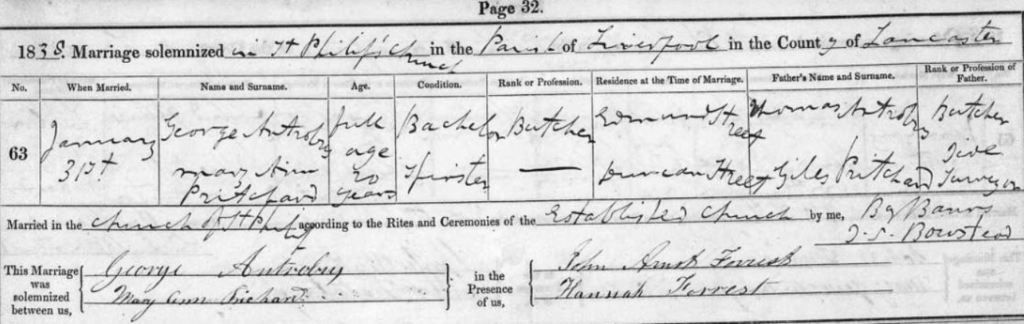 Page 32.
1838. Marriage solemnized in St Philip's Church in the Parish of Liverpool in the County of Lancaster
No. When Married. Name and Surname. Age. Condition. Rank or Profession. Residence at the Time of Marriage. Father's Name and Surname. Rank or Profession of Father.
63 January 31st George Antrobus full age Bachelor Butcher Edmund Street Thomas Antrobus Butcher
Mary Ann Pritchard 20 years Spinster — Duncan Street Giles Pritchard Tide Surveyor
Married in the Church of St Philip according to the Rites and Ceremonies of the Established Church by me, By Banns
J. S. Bowstead
This Marriage was solemnized between us, George Antrobus Mary Ann in the Presence of us, John Forrest Hannah Forrest